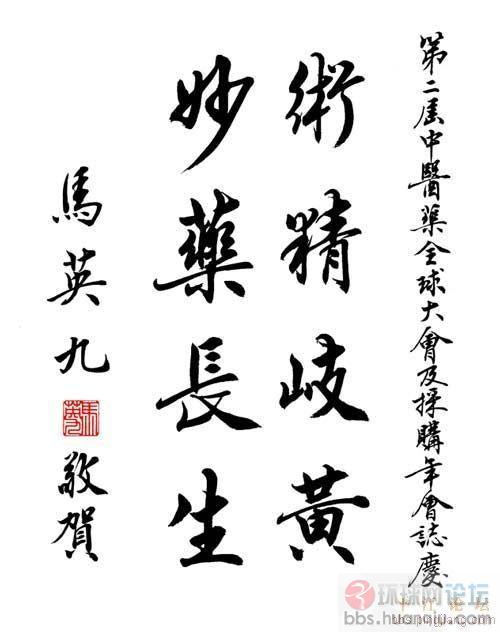 第二屆中醫藥全球大會及採購年會誌慶
術精岐黃
妙藥長生
馬英九
敬賀
环球网论坛
bbs.huanqiu.com